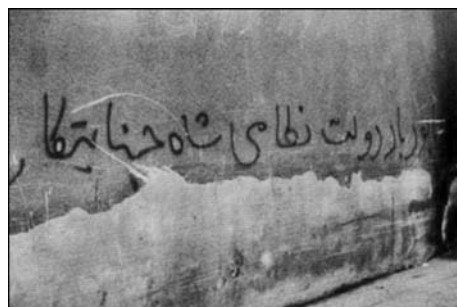 دولت نظامی شاه جنایتکار